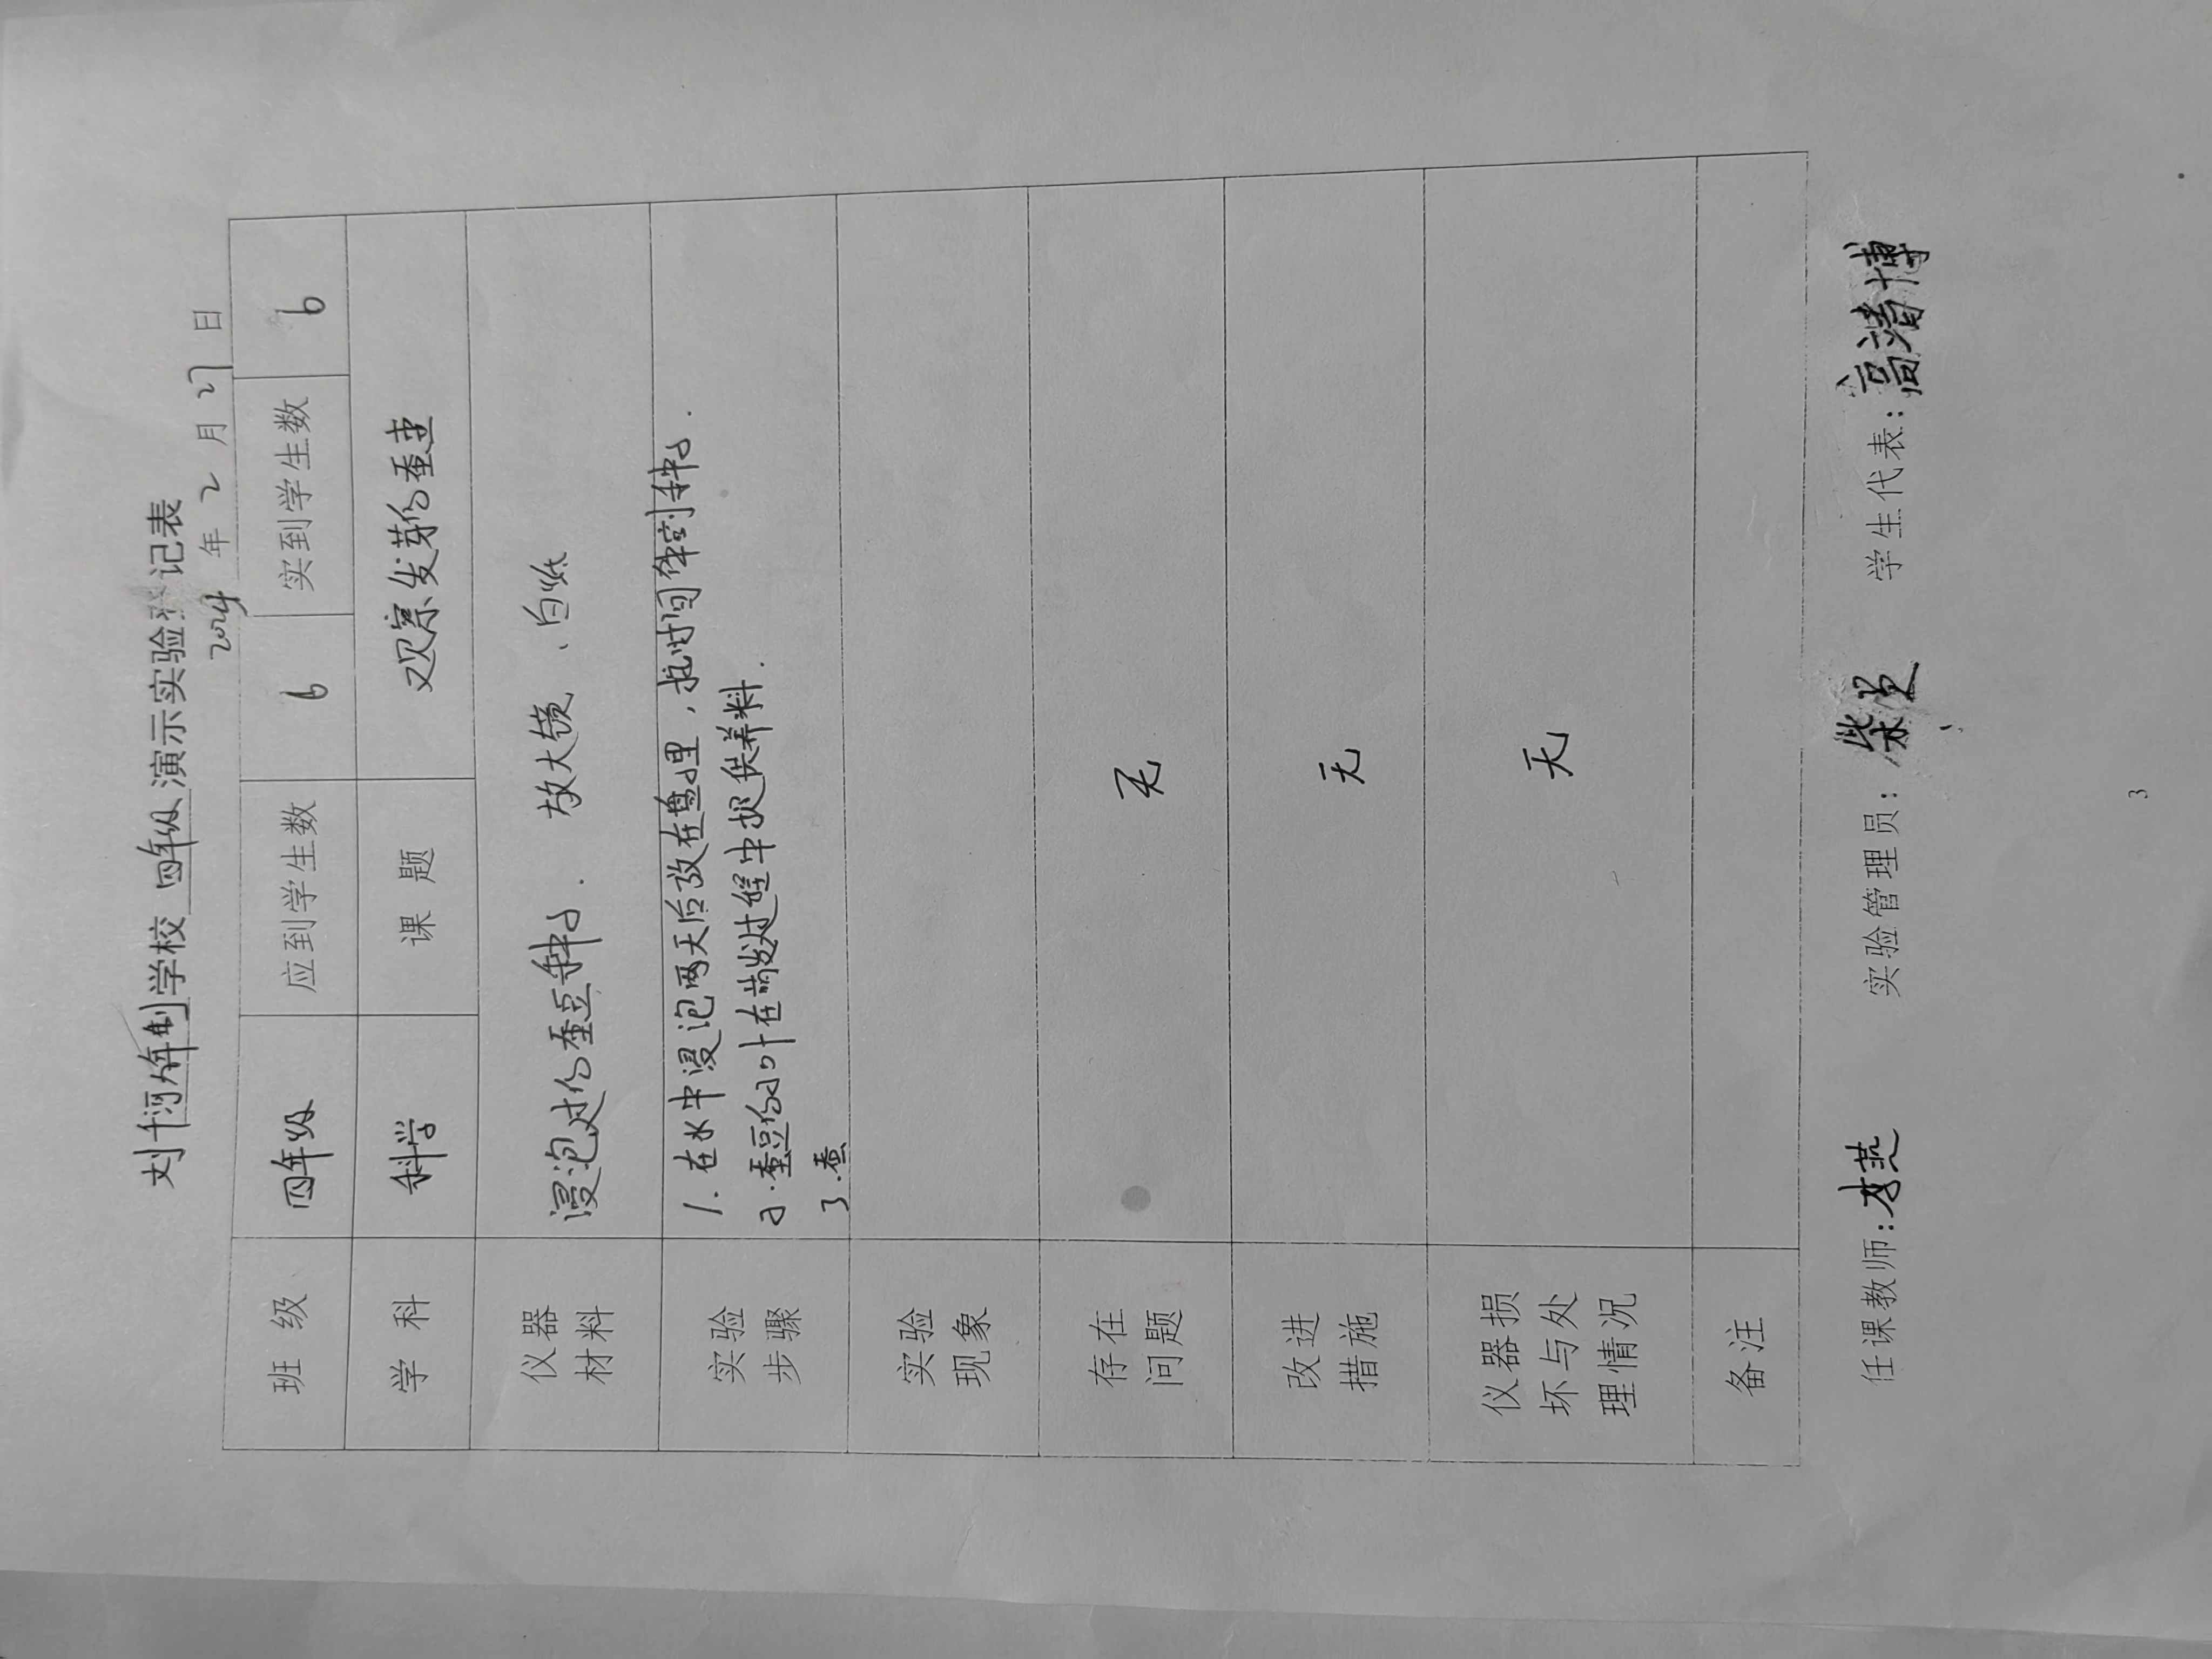 学校 四年级 演示实验 记表
2024 年 2 月 27 日
班 级 四年级 应到学生数 6 实到学生数 6
学 科 科学 课 题 观察发芽的蚕豆
仪器
材料
浸泡过的蚕豆种子. 放大镜、白纸
实验
步骤
1. 在水中浸泡两天后放在盘里, 种子.
2.蚕豆的子叶在萌发过程中提供养料.
3.蚕
实验
现象
存在
问题
无
改进
措施
无
仪器损
坏与处
理情况
无
备注
任课教师: 实验管理员: 柴 学生代表: 高清博
3